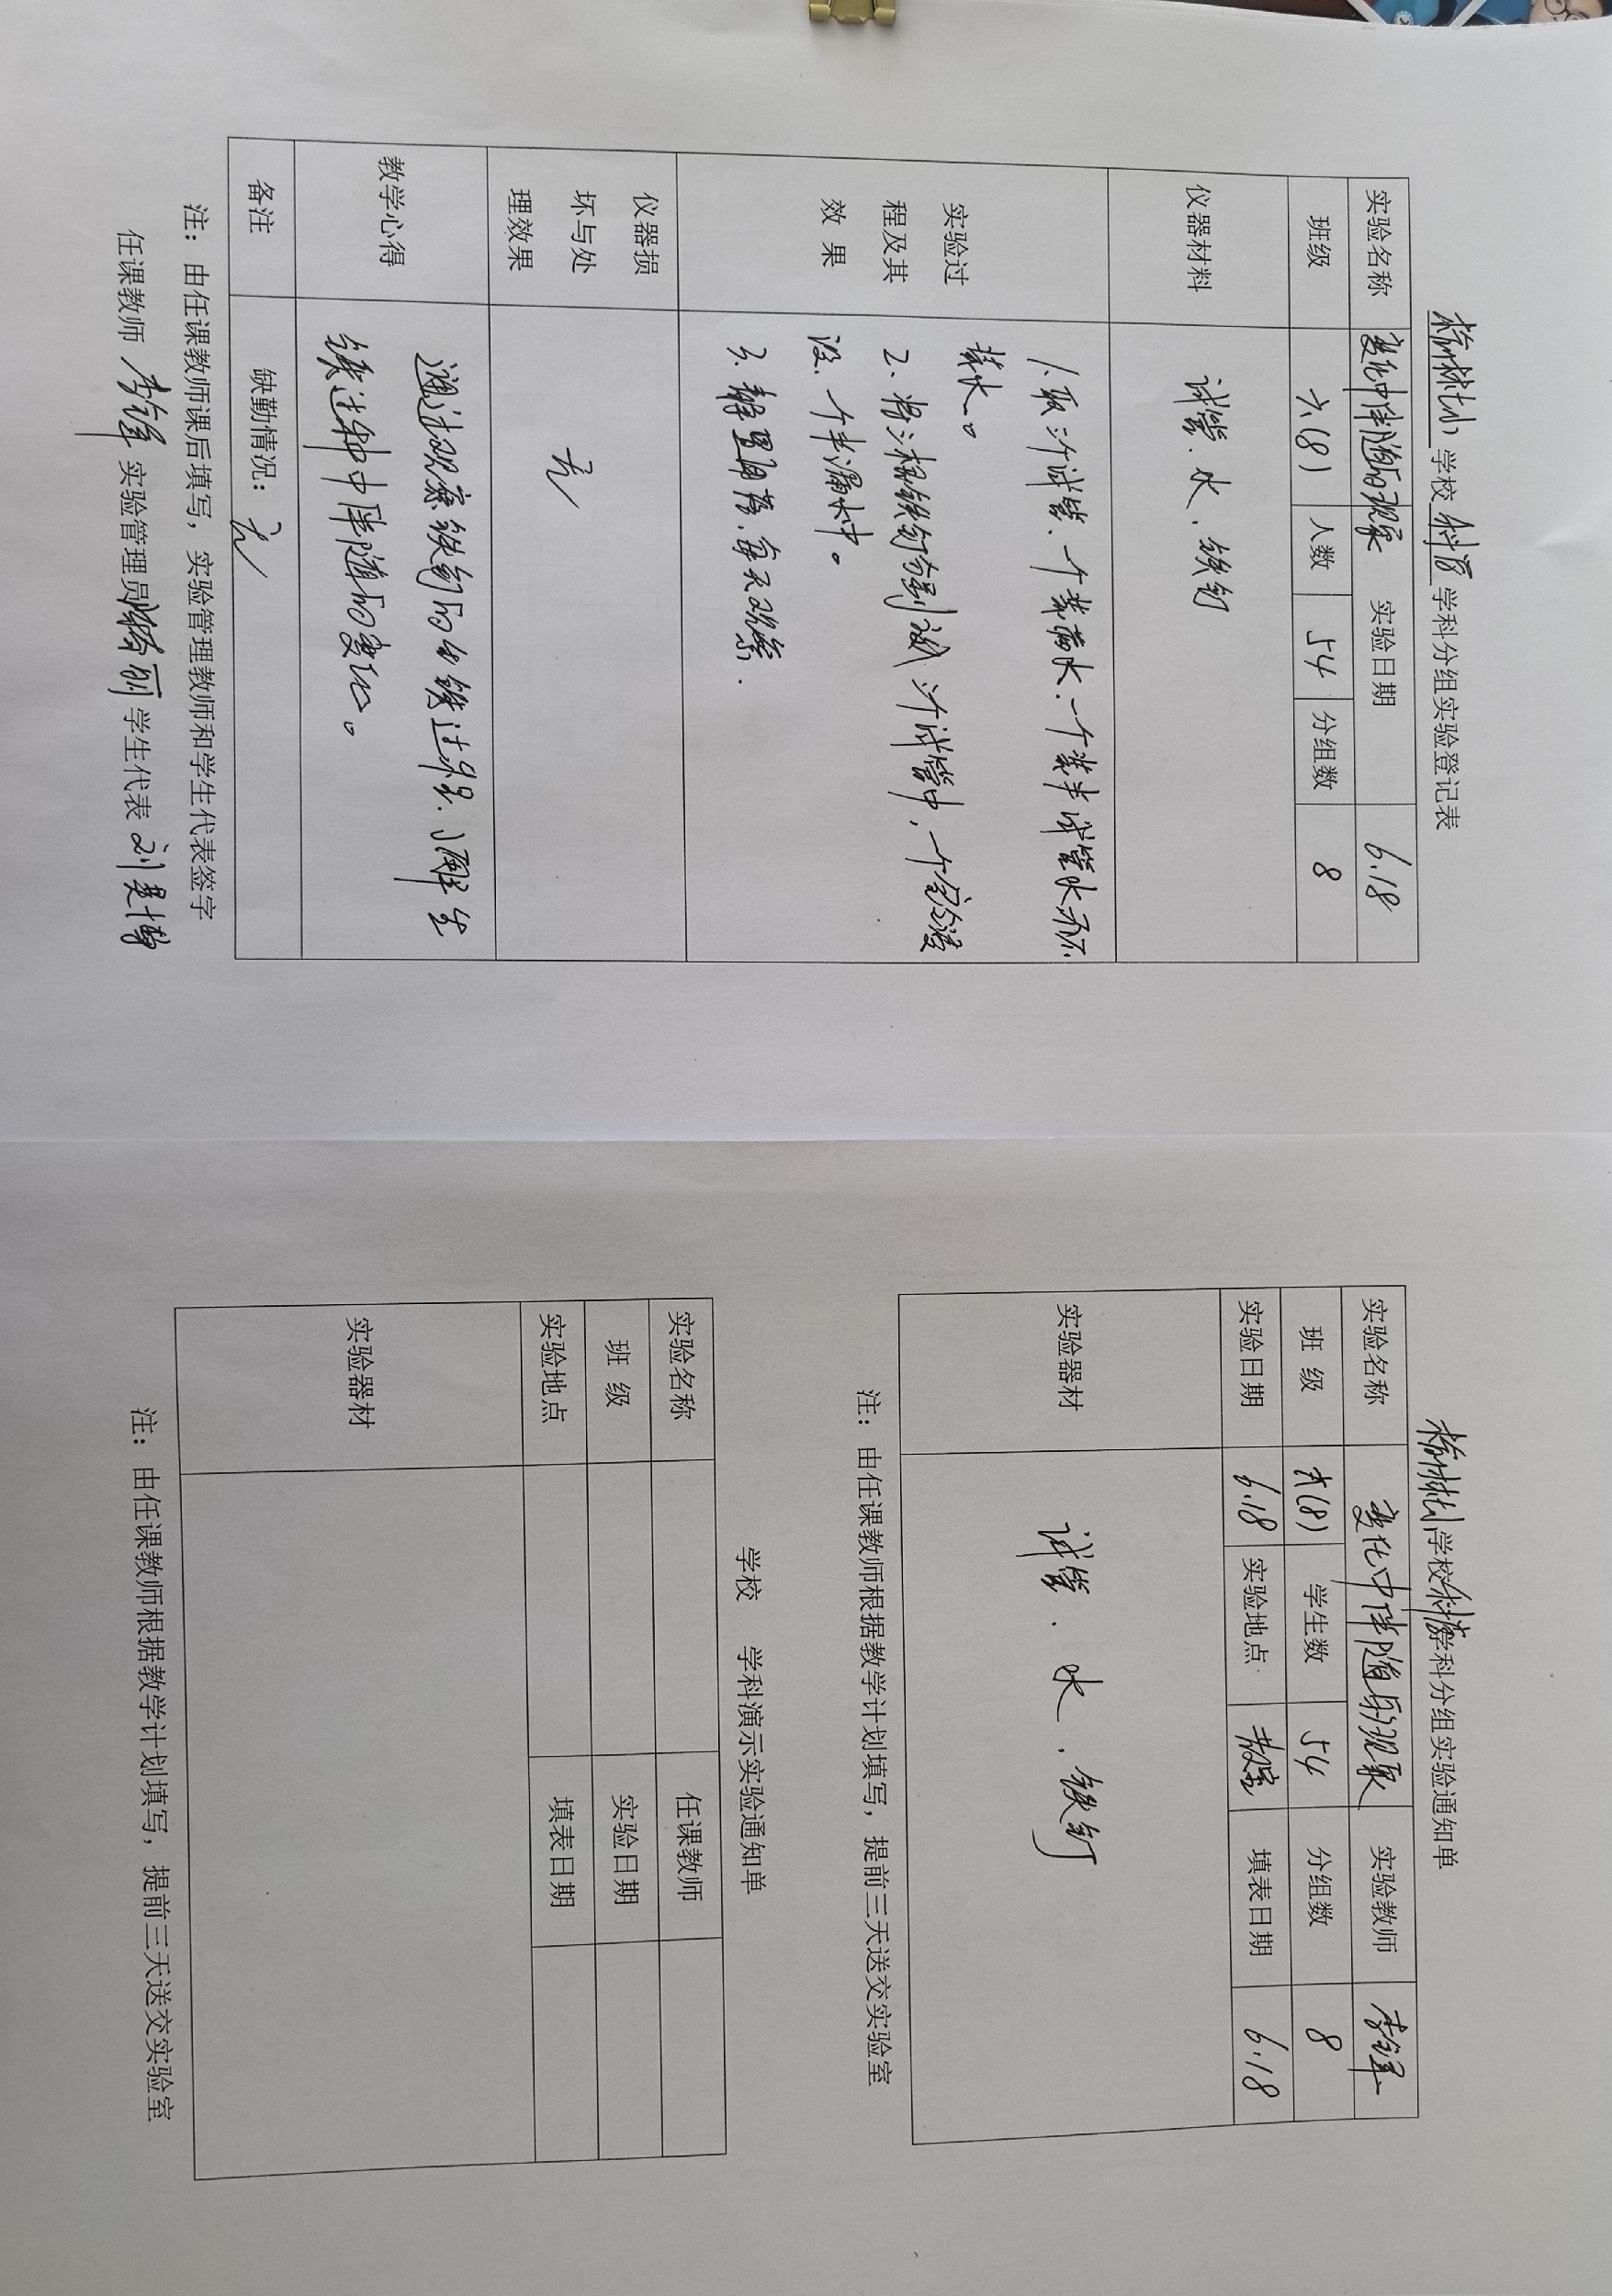 学校 科学 学科分组实验登记表
实验名称 变化中伴随的现象 实验日期 6.18
班级 六(8) 人数 54 分组数 8
仪器材料 试管、水、铁钉
实验过程及其效果
1.取三个试管、一个装满水、一个装半试管水、不
装水。
2、将三根铁钉分别放三个试管中,一个完全浸
没、一个半漏水中。
3、静置阴落、每天观察.
仪器损坏与处理效果 无
教学心得
通过观察铁钉的生锈过程、了解生
锈过程中伴随的变化。
备注 缺勤情况: 无
注:由任课教师课后填写,实验管理教师和学生代表签字
任课教师 李锋 实验管理员 学生代表
学校科学学科分组实验通知单
实验名称 变化中伴随的现象 实验教师 李锋
班 级 六(8) 学生数 54 分组数 8
实验日期 6.18 实验地点 教室 填表日期 6.18
实验器材 试管、水、铁钉
注:由任课教师根据教学计划填写,提前三天送交实验室
学校 学科演示实验通知单
实验名称 任课教师
班 级 实验日期
实验地点 填表日期
实验器材
注:由任课教师根据教学计划填写,提前三天送交实验室